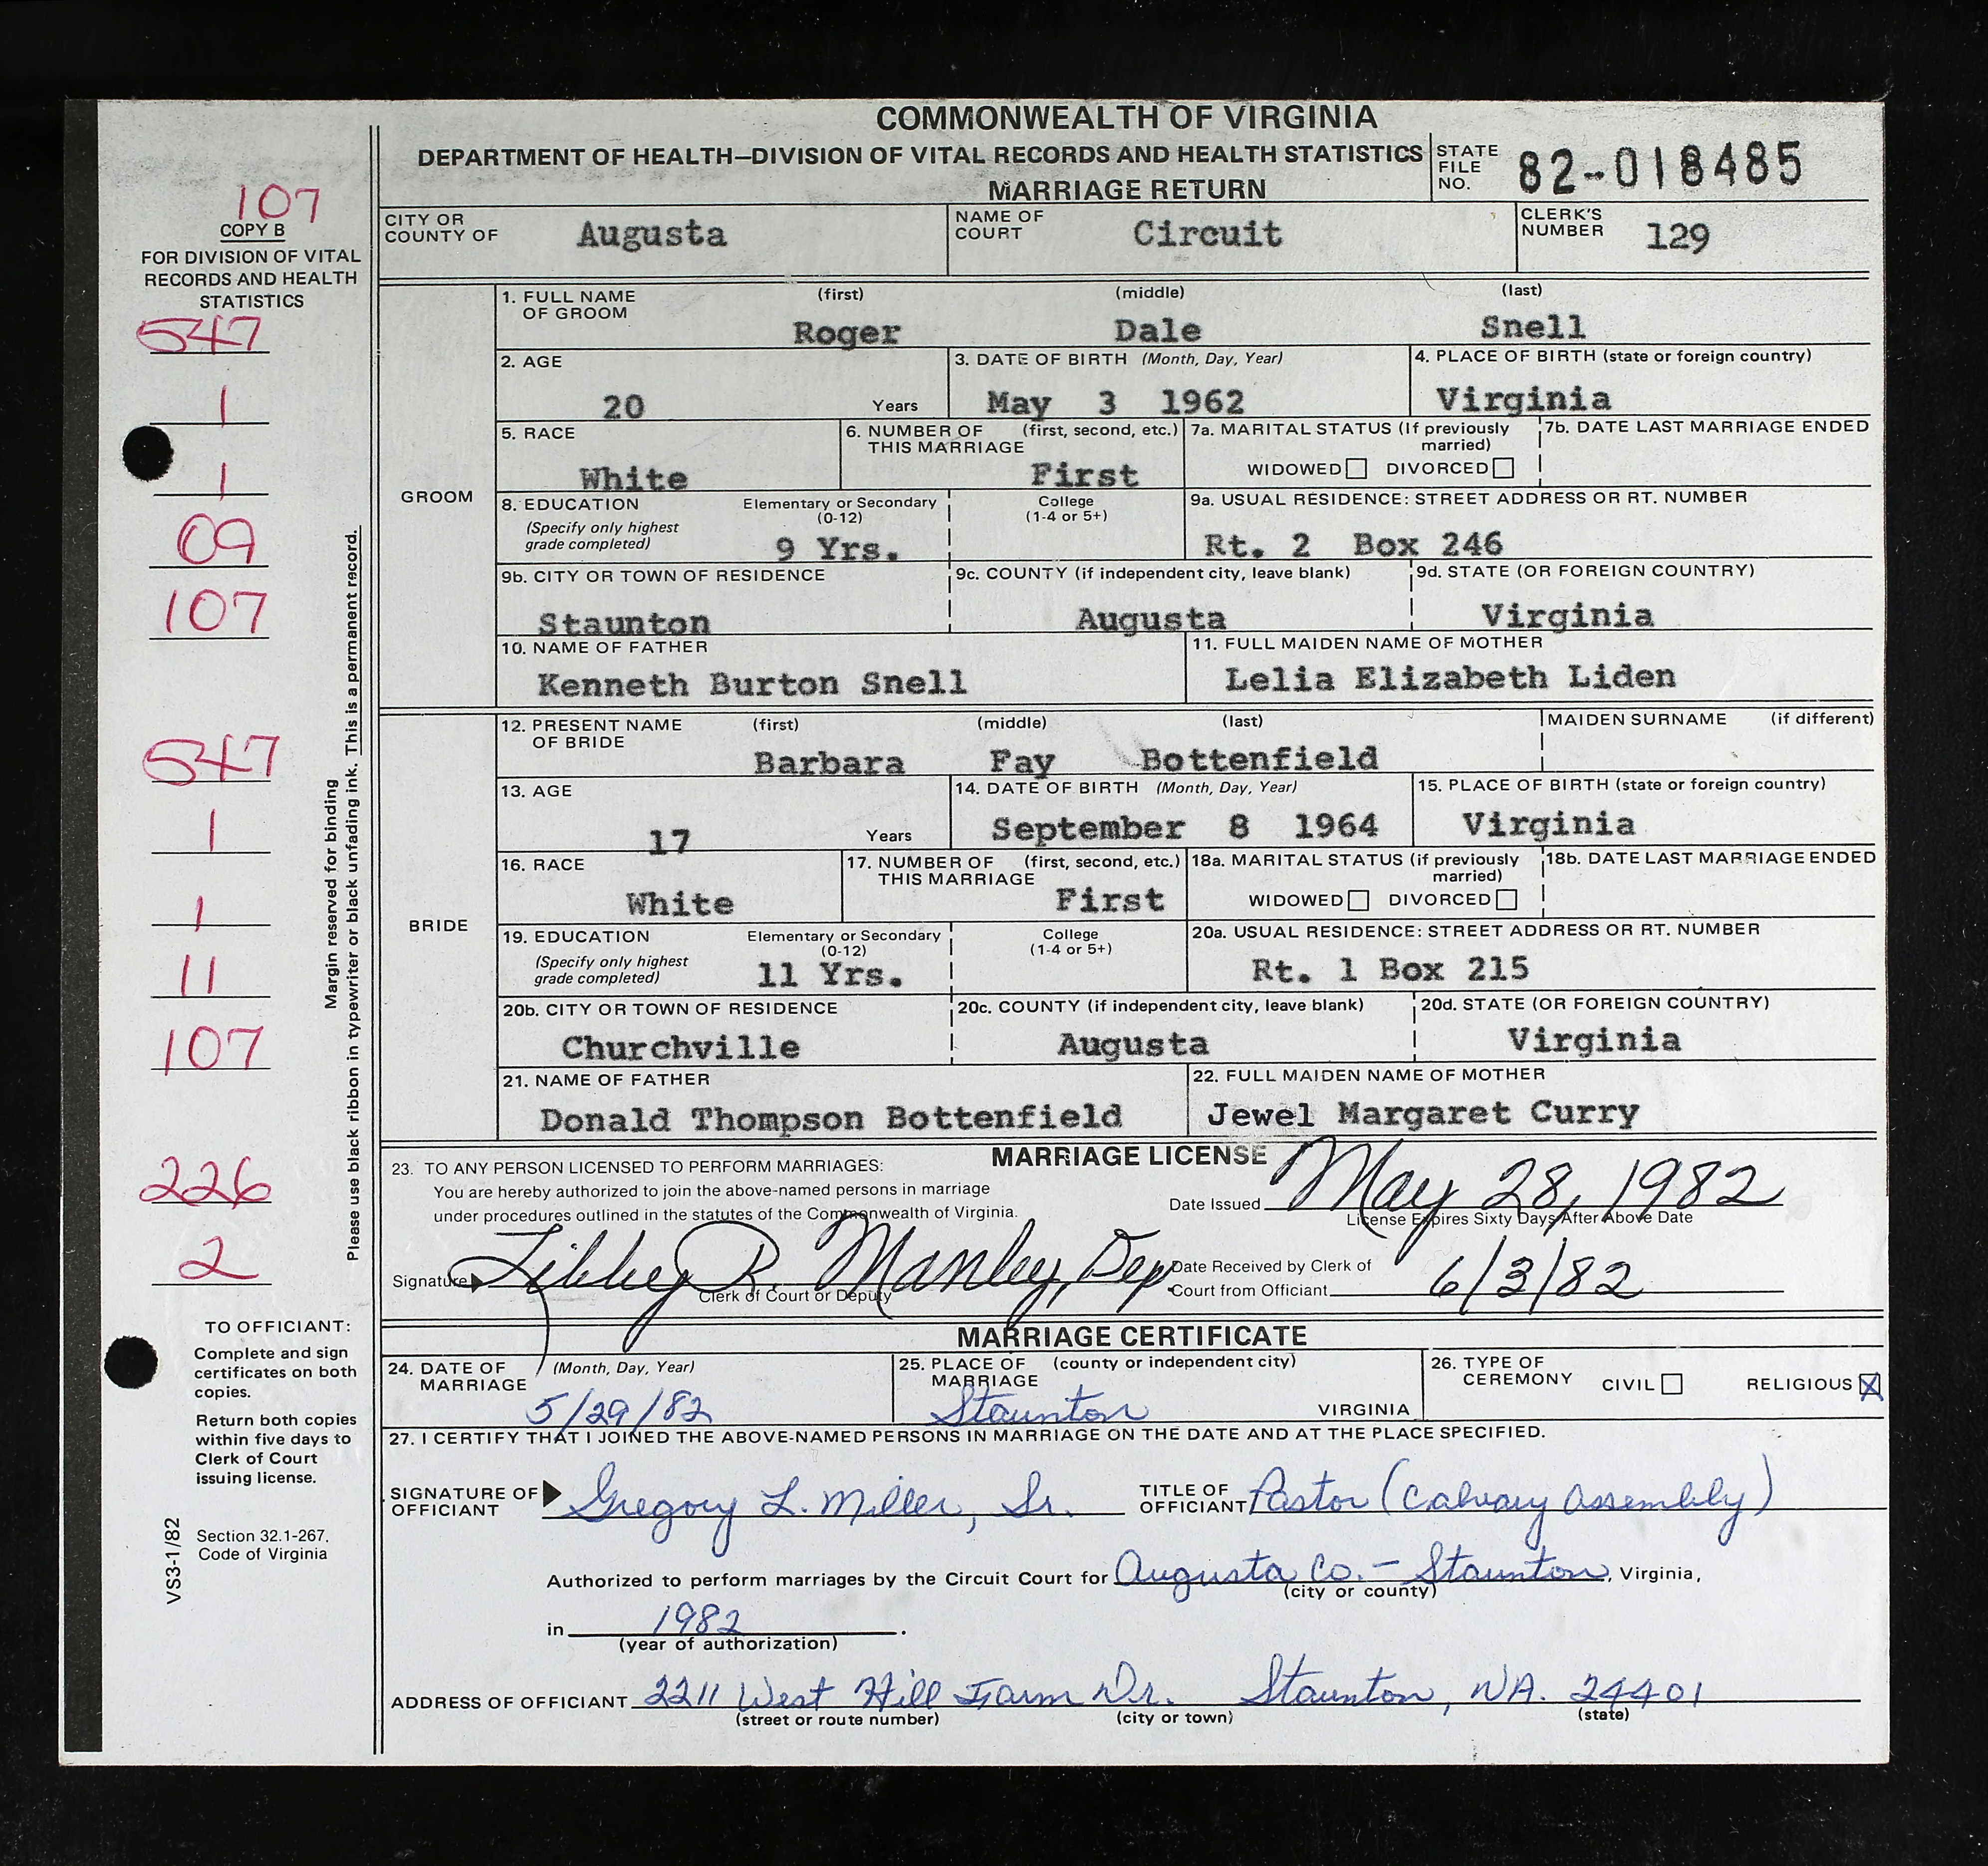 COMMONWEALTH OF VIRGINIA
DEPARTMENT OF HEALTH—DIVISION OF VITAL RECORDS AND HEALTH STATISTICS
MARRIAGE RETURN
STATE FILE NO. 82-018485
107
COPY B
FOR DIVISION OF VITAL
RECORDS AND HEALTH
STATISTICS
547
1
1
09
107
547
1
1
11
107
226
2
Margin reserved for binding
Please use black ribbon in typewriter or black unfading ink. This is a permanent record.
TO OFFICIANT:
Complete and sign
certificates on both
copies.
Return both copies
within five days to
Clerk of Court
issuing license.
Section 32.1-267,
Code of Virginia
VS3-1/82
CITY OR COUNTY OF Augusta
NAME OF COURT Circuit
CLERK'S NUMBER 129
GROOM
1. FULL NAME OF GROOM (first) (middle) (last)
Roger Dale Snell
2. AGE 20 Years
3. DATE OF BIRTH (Month, Day, Year) May 3 1962
4. PLACE OF BIRTH (state or foreign country) Virginia
5. RACE White
6. NUMBER OF THIS MARRIAGE (first, second, etc.) First
7a. MARITAL STATUS (If previously married) WIDOWED DIVORCED
7b. DATE LAST MARRIAGE ENDED
8. EDUCATION (Specify only highest grade completed) Elementary or Secondary (0-12) 9 Yrs. College (1-4 or 5+)
9a. USUAL RESIDENCE: STREET ADDRESS OR RT. NUMBER Rt. 2 Box 246
9b. CITY OR TOWN OF RESIDENCE Staunton
9c. COUNTY (if independent city, leave blank) Augusta
9d. STATE (OR FOREIGN COUNTRY) Virginia
10. NAME OF FATHER Kenneth Burton Snell
11. FULL MAIDEN NAME OF MOTHER Lelia Elizabeth Liden
BRIDE
12. PRESENT NAME OF BRIDE (first) (middle) (last) MAIDEN SURNAME (if different)
Barbara Fay Bottenfield
13. AGE 17 Years
14. DATE OF BIRTH (Month, Day, Year) September 8 1964
15. PLACE OF BIRTH (state or foreign country) Virginia
16. RACE White
17. NUMBER OF THIS MARRIAGE (first, second, etc.) First
18a. MARITAL STATUS (if previously married) WIDOWED DIVORCED
18b. DATE LAST MARRIAGE ENDED
19. EDUCATION (Specify only highest grade completed) Elementary or Secondary (0-12) 11 Yrs. College (1-4 or 5+)
20a. USUAL RESIDENCE: STREET ADDRESS OR RT. NUMBER Rt. 1 Box 215
20b. CITY OR TOWN OF RESIDENCE Churchville
20c. COUNTY (if independent city, leave blank) Augusta
20d. STATE (OR FOREIGN COUNTRY) Virginia
21. NAME OF FATHER Donald Thompson Bottenfield
22. FULL MAIDEN NAME OF MOTHER Jewel Margaret Curry
MARRIAGE LICENSE
23. TO ANY PERSON LICENSED TO PERFORM MARRIAGES:
You are hereby authorized to join the above-named persons in marriage
under procedures outlined in the statutes of the Commonwealth of Virginia.
Date Issued May 28, 1982
License Expires Sixty Days After Above Date
Signature Libby R. Manley, Dep.
Clerk of Court or Deputy
Date Received by Clerk of
Court from Officiant 6/3/82
MARRIAGE CERTIFICATE
24. DATE OF MARRIAGE (Month, Day, Year) 5/29/82
25. PLACE OF MARRIAGE (county or independent city) Staunton VIRGINIA
26. TYPE OF CEREMONY CIVIL RELIGIOUS X
27. I CERTIFY THAT I JOINED THE ABOVE-NAMED PERSONS IN MARRIAGE ON THE DATE AND AT THE PLACE SPECIFIED.
SIGNATURE OF OFFICIANT Gregory L. Miller, Sr.
TITLE OF OFFICIANT Pastor (Calvary Assembly)
Authorized to perform marriages by the Circuit Court for Augusta Co. – Staunton, Virginia,
(city or county)
in 1982.
(year of authorization)
ADDRESS OF OFFICIANT 2211 West Hill Farm Dr. Staunton, VA. 24401
(street or route number) (city or town) (state)